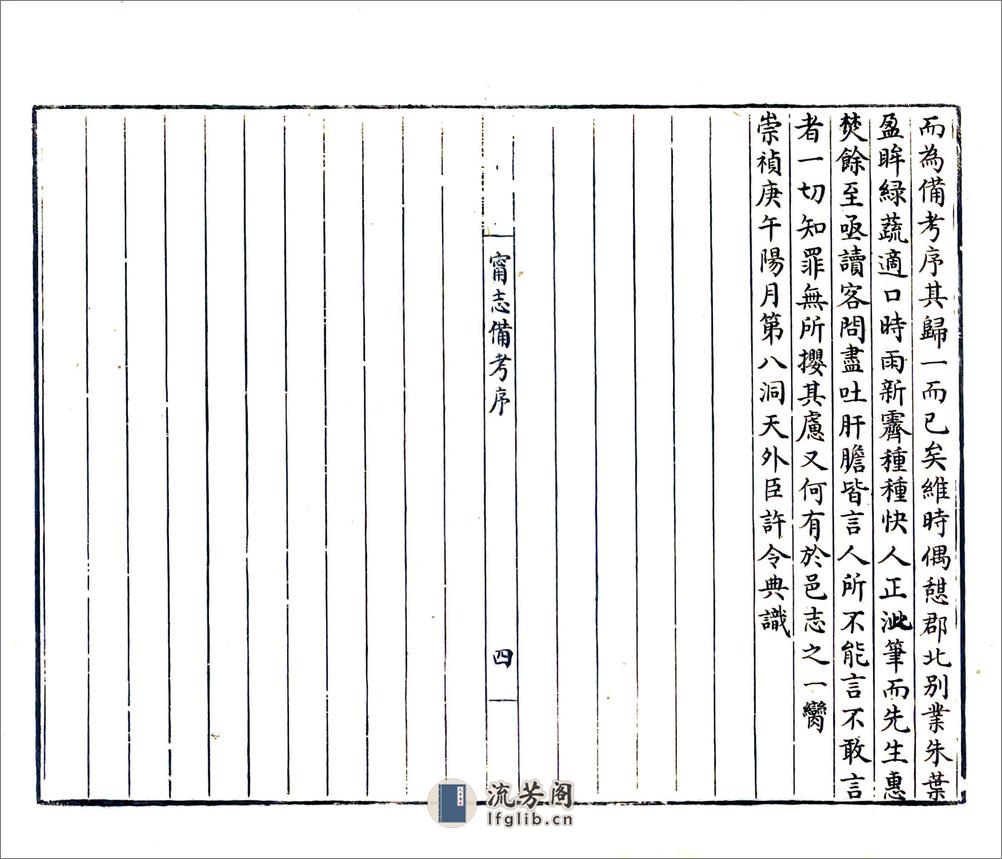 而為備考序其歸一而已矣維時偶憇郡北别業朱葉
盈眸緑蔬適口時雨新霽種種快人正泚筆而先生惠
焚餘至亟讀客問盡吐肝膽皆言人所不能言不敢言
者一切知罪無所攖其慮又何有於邑志之一臠
崇禎庚午陽月第八洞天外臣許令典識
甯志備考序
四
流芳阁
lfglib.cn